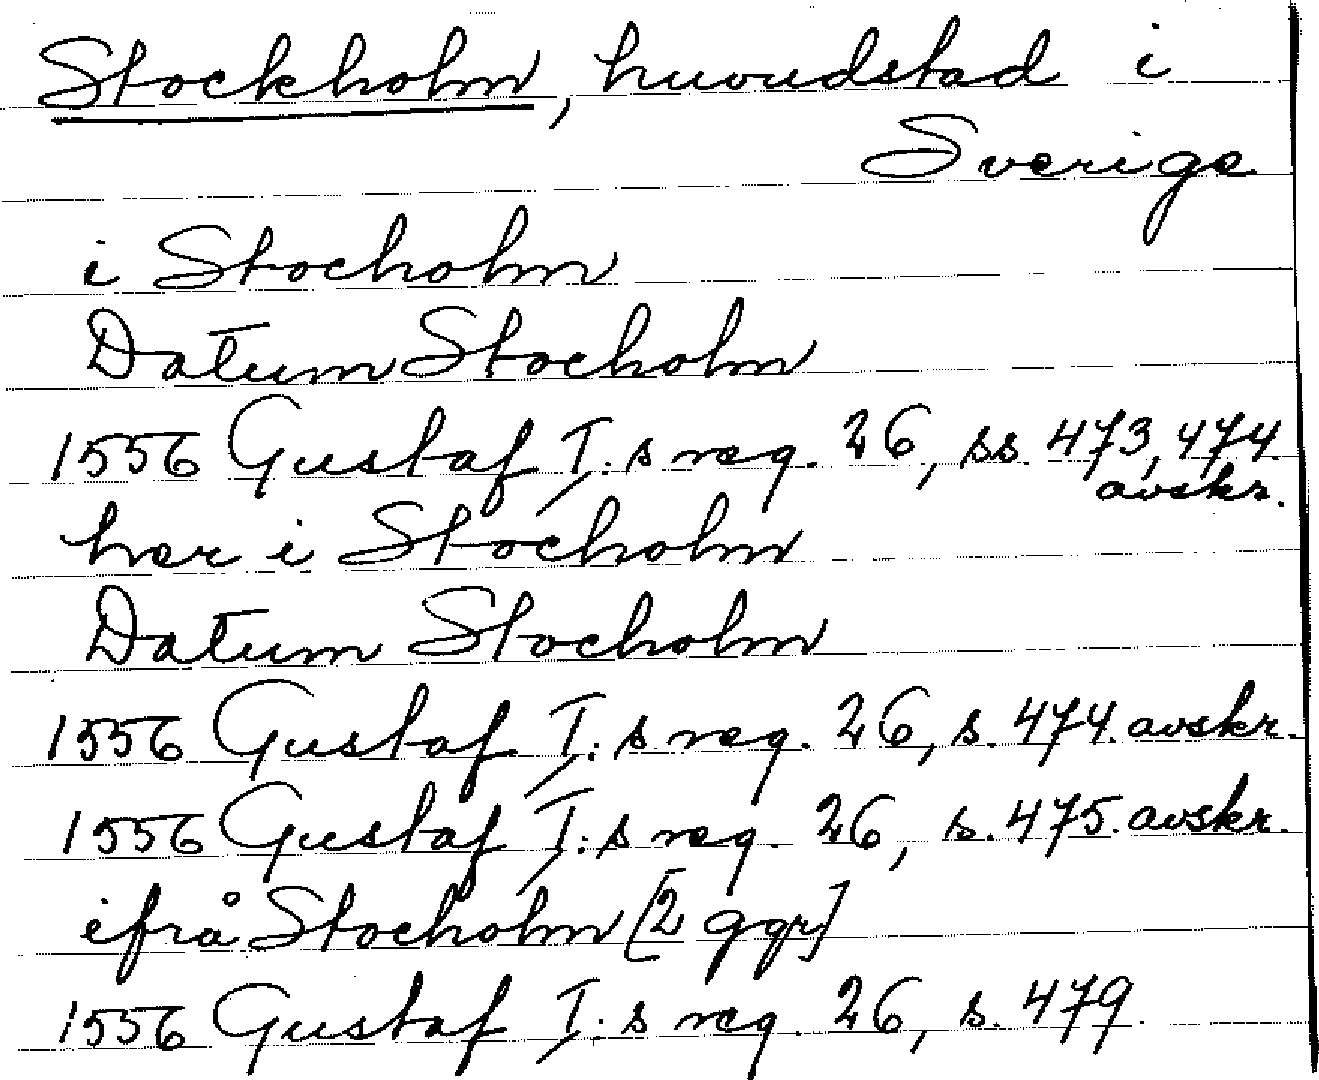 Stockholm, huvudstad i
Sverige
i Stocholm
Datum Stocholm
1556 Gustaf I:s reg. 26, ss. 473, 474
avskr.
her i Stocholm
Datum Stocholm
1556 Gustaf I:s reg. 26, s. 474 avskr.
1556 Gustaf I:s reg. 26, s. 475 avskr.
ifrå Stocholm [2 ggr]
1556 Gustaf I:s reg. 26, s. 479